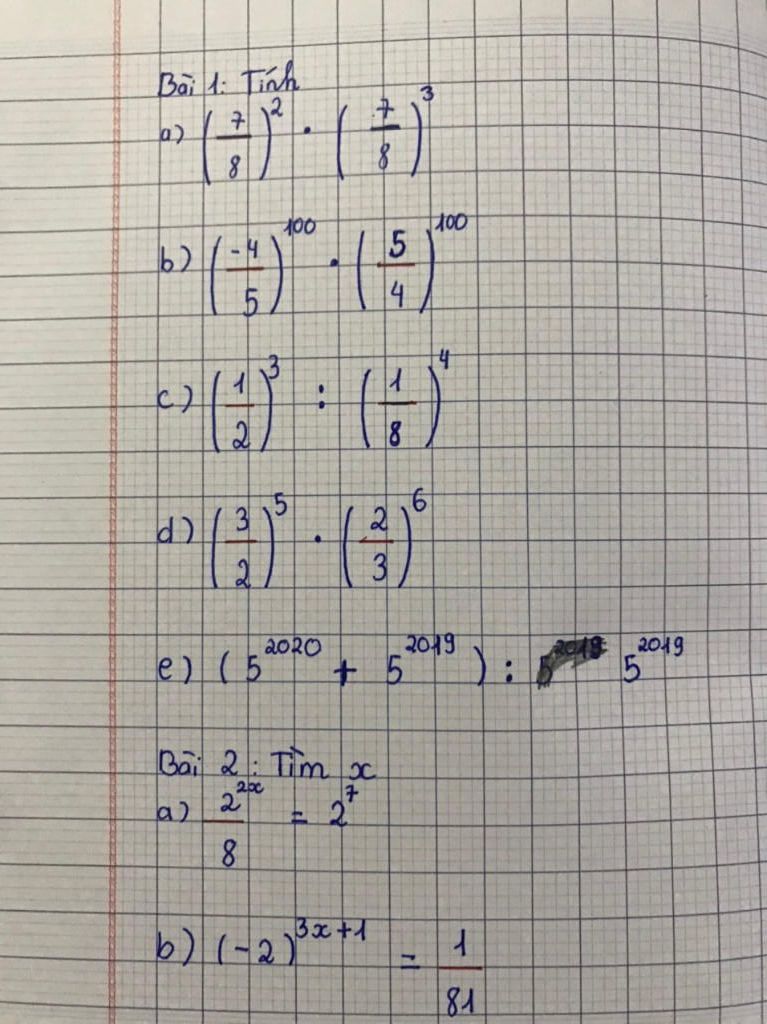 Bài 1: Tính
a) (7/8)^2 . (7/8)^3
b) (-4/5)^100 . (5/4)^100
c) (1/2)^3 : (1/8)^4
d) (3/2)^5 . (2/3)^6
e) (5^2020 + 5^2019) : 5^2019
Bài 2: Tìm x
a) 2^2x/8 = 2^7
b) (-2)^3x+1 = 1/81